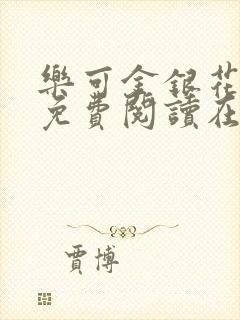 樂可金銀花
免費閱讀在
賈博